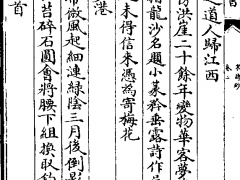 道人歸江西
洪崖二十餘年變物華客夢
龍沙名題小篆矜垂露詩作
未得信來憑為寄梅花
港
微風起細漣緑陰三月後倒影
苔碎石圓會將腰下組換取釣
首
卷二